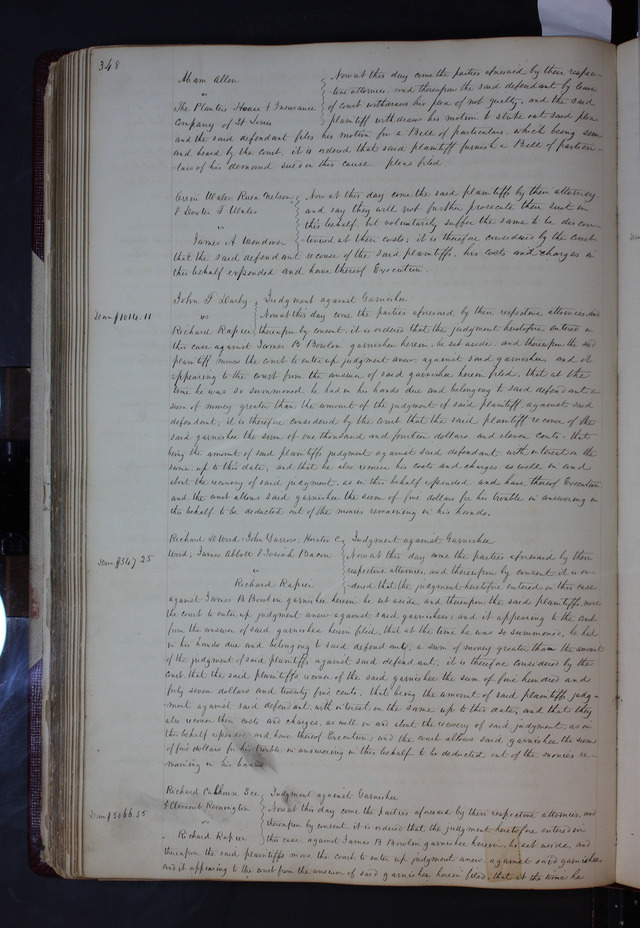 348
Hiram Allen } Now at this day come the parties aforesaid by their respec-
vs } tive attornies, and thereupon the said defendant by leave
The Planters House & Insurance } of court withdraws his plea of not guilty, and the said
Company of St Louis } plaintiff withdraws his motion to strike out said plea
and the said defendant files his motion for a Bill of particulars, which being seen
and heard by the court, it is ordered that said plaintiff furnish a Bill of particu-
lars of his demand sued on this cause pleas filed
Wales, Nelson } Now at this day come the said plaintiffs by their attorney
& Wales } and say they will not further prosecute their suit in
vs } this behalf, but voluntarily suffer the same to be discon-
James A } tinued at their costs; it is therefore considered by the court
that the said defendant recover of the said plaintiffs, his costs and charges in
this behalf expended and have thereof Execution.
John F Darby } Judgment against Garnishee
Dam $1014.11 vs } Now at this day come the parties aforesaid by their respective attornies, and
Richard Rapier } thereupon by consent, it is ordered that the judgment heretofore entered in
this case against James B Bowlin garnishee herein, be set aside, and thereupon the said
plaintiff moves the court to enter up judgment anew against said garnishee, and it
appearing to the court from the answer of said garnishee herein filed, that at the
time he was so summoned he had in his hands due and belonging to said defendant a
sum of money greater than the amount of the judgment of said plaintiff against said
defendant, it is therefore considered by the court that the said plaintiff recover of the
said garnishee the sum of one thousand and fourteen dollars and eleven cents, that
being the amount of said plaintiffs judgment against said defendant with interest on the
same, up to this date, and that he also recover his costs and charges as well in and
about the recovery of said judgment, as in this behalf expended, and have thereof Execution
and the court allows said garnishee the sum of five dollars for his trouble in answering in
this behalf to be deducted out of the monies remaining in his hands.
Richard Ward, John Farrow, } Judgment against Garnishee
Dam $547.25 Ward, James Abbott & Josiah Bacon } Now at this day come the parties aforesaid by their
vs } respective attornies, and thereupon by consent it is or-
Richard Rapier } dered that the judgment heretofore entered in this case
against James B Bowlin garnishee herein be set aside and thereupon the said plaintiffs move
the court to enter up judgment anew against said garnishee; and it appearing to the court
from the answer of said garnishee herein filed, that at the time he was so summoned, he had
in his hands due and belonging to said defendant, a sum of money greater than the amount
of the judgment of said plaintiffs against said defendant, it is therefore considered by the
court, that the said plaintiffs recover of the said garnishee the sum of five hundred and
forty seven dollars and twenty five cents, that being the amount of said plaintiffs judg-
ment against said defendant, with interest on the same up to this date, and that they
also recover their costs and charges, as well in and about the recovery of said judgment, as in
this behalf expended, and have thereof Execution; and the court allows said garnishee the sum
of five dollars for his trouble in answering in this behalf to be deducted out of the monies re-
maining in his hands
Richard } Judgment against Garnishee
Dam $5066.55 & Clement Remington } Now at this day come the parties aforesaid by their respective attornies, and
vs } thereupon by consent it is ordered that the judgment heretofore entered in
Richard Rapier } this case, against James B Bowlin garnishee herein, be set aside, and
thereupon the said plaintiffs move the court to enter up judgment anew against said garnishee
and it appearing to the court from the answer of said garnishee herein filed, that at the time he